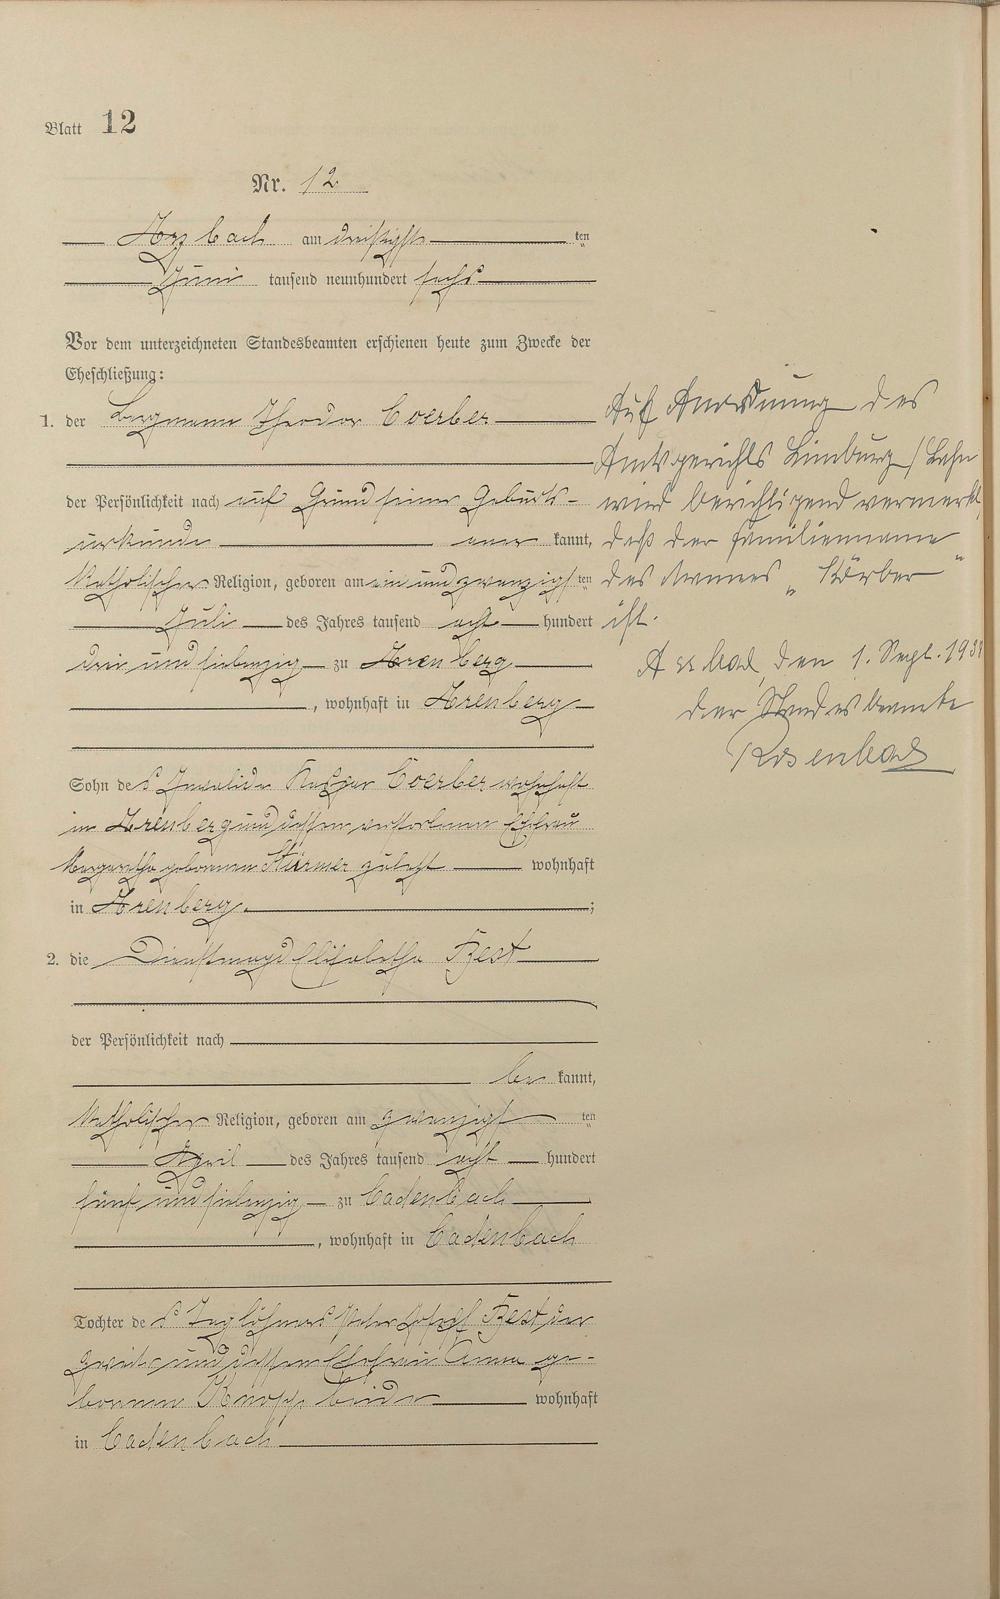 Blatt 12
Nr. 12.
Arzbach am dreißigsten
Juni tausend neunhundert sechs
Vor dem unterzeichneten Standesbeamten erschienen heute zum Zwecke der
Eheschließung:
1. der Bergmann Theodor Coerber
der Persönlichkeit nach auf Grund seiner Geburts-
urkunde aner kannt,
katholischer Religion, geboren am ein und zwanzigsten
Juli des Jahres tausend acht hundert
drei und siebenzig zu Arenberg
, wohnhaft in Arenberg
Sohn des Invalide Kaspar Coerber wohnhaft
in Arenberg und dessen verstorbenen Ehefrau
Margaretha geborenen Stürmer zuletzt wohnhaft
in Arenberg.;
2. die Dienstmagd Elisabetha Best
der Persönlichkeit nach
be kannt,
katholischer Religion, geboren am zwanzigsten
April des Jahres tausend acht hundert
fünf und siebenzig zu Cadenbach
, wohnhaft in Cadenbach
Tochter des Taglöhners Peter Josef Best der
zweite und dessen Ehefrau Anna ge-
borenen Knopp beide wohnhaft
in Cadenbach
Auf Anordnung des
Amtsgerichts Limburg/Lahn
wird berichtigend vermerkt,
daß der Familienname
des Mannes „Körber"
ist.
Arzbach, den 1. Sept. 193
der Standesbeamte
Rosenbach